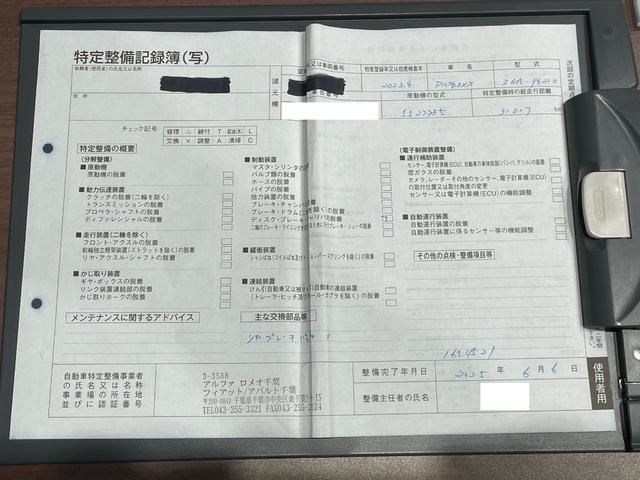 特定整備記録簿(写)
依頼者(使用者)の氏名又は名称
住所
諸元
車両番号
初度登録年又は初度検査年
車名
型式
2023.8
原動機の型式
特定整備時の総走行距離
55273835
31,017
km
チェック記号
修理 △ 締付 T 給油(水) L
交換 × 調整 A 清掃 C
特定整備の概要
(分解整備)
■原動機
原動機の脱着
■動力伝達装置
クラッチの脱着(二輪を除く)
トランスミッションの脱着
プロペラ・シャフトの脱着
ディファレンシャルの脱着
■走行装置(二輪を除く)
フロント・アクスルの脱着
前輪独立懸架装置(ストラットを除く)の脱着
リヤ・アクスル・シャフトの脱着
■かじ取り装置
ギヤ・ボックスの脱着
リンク装置連結部の脱着
かじ取りホークの脱着
■制動装置
マスタ・シリンダの脱着
バルブ類の脱着
ホースの脱着
パイプの脱着
倍力装置の脱着
ブレーキ・チャンバの脱着
ブレーキ・ドラム(二輪を除く)の脱着
ディスク・ブレーキ・キャリパの脱着
■緩衝装置
■連結装置
けん引自動車又は被けん引自動車の連結装置
(電子制御装置整備)
■運行補助装置
センサー、電子計算機(ECU)、自動車の車体前部(バンパ、グリル)の脱着
窓ガラスの脱着
カメラ、レーダーその他のセンサー、電子計算機(ECU)
の取付位置又は取付角度の変更
センサー又は電子計算機(ECU)の機能調整
■自動運行装置
自動運行装置の脱着
自動運行装置に係るセンサー等の機能調整
その他の点検・整備項目等
メンテナンスに関するアドバイス
主な交換部品等
164521
自動車特定整備事業者
の氏名又は名称
事業場の所在地
並びに認証番号
3-3588
アルファ ロメオ千葉
フィアット/アバルト千葉
TEL043-255-3321
整備完了年月日
2025 年 6 月 6 日
整備主任者の氏名
使用者用